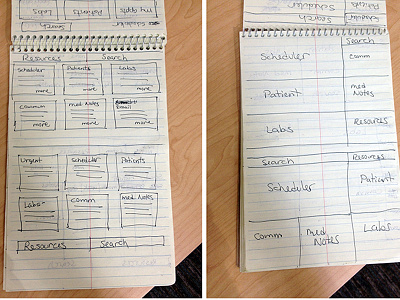 my appts Patients Labs
Scheduler Search
Resources Search
Scheduler Patients Labs
more more more
Comm med Notes Email
more more more
Urgent Scheduler Patients
Labs Comm med Notes
Resources Search
Search
Scheduler Comm
Patient med Notes
Labs Resources
Search Resources
Scheduler Patient
Comm med Notes Labs